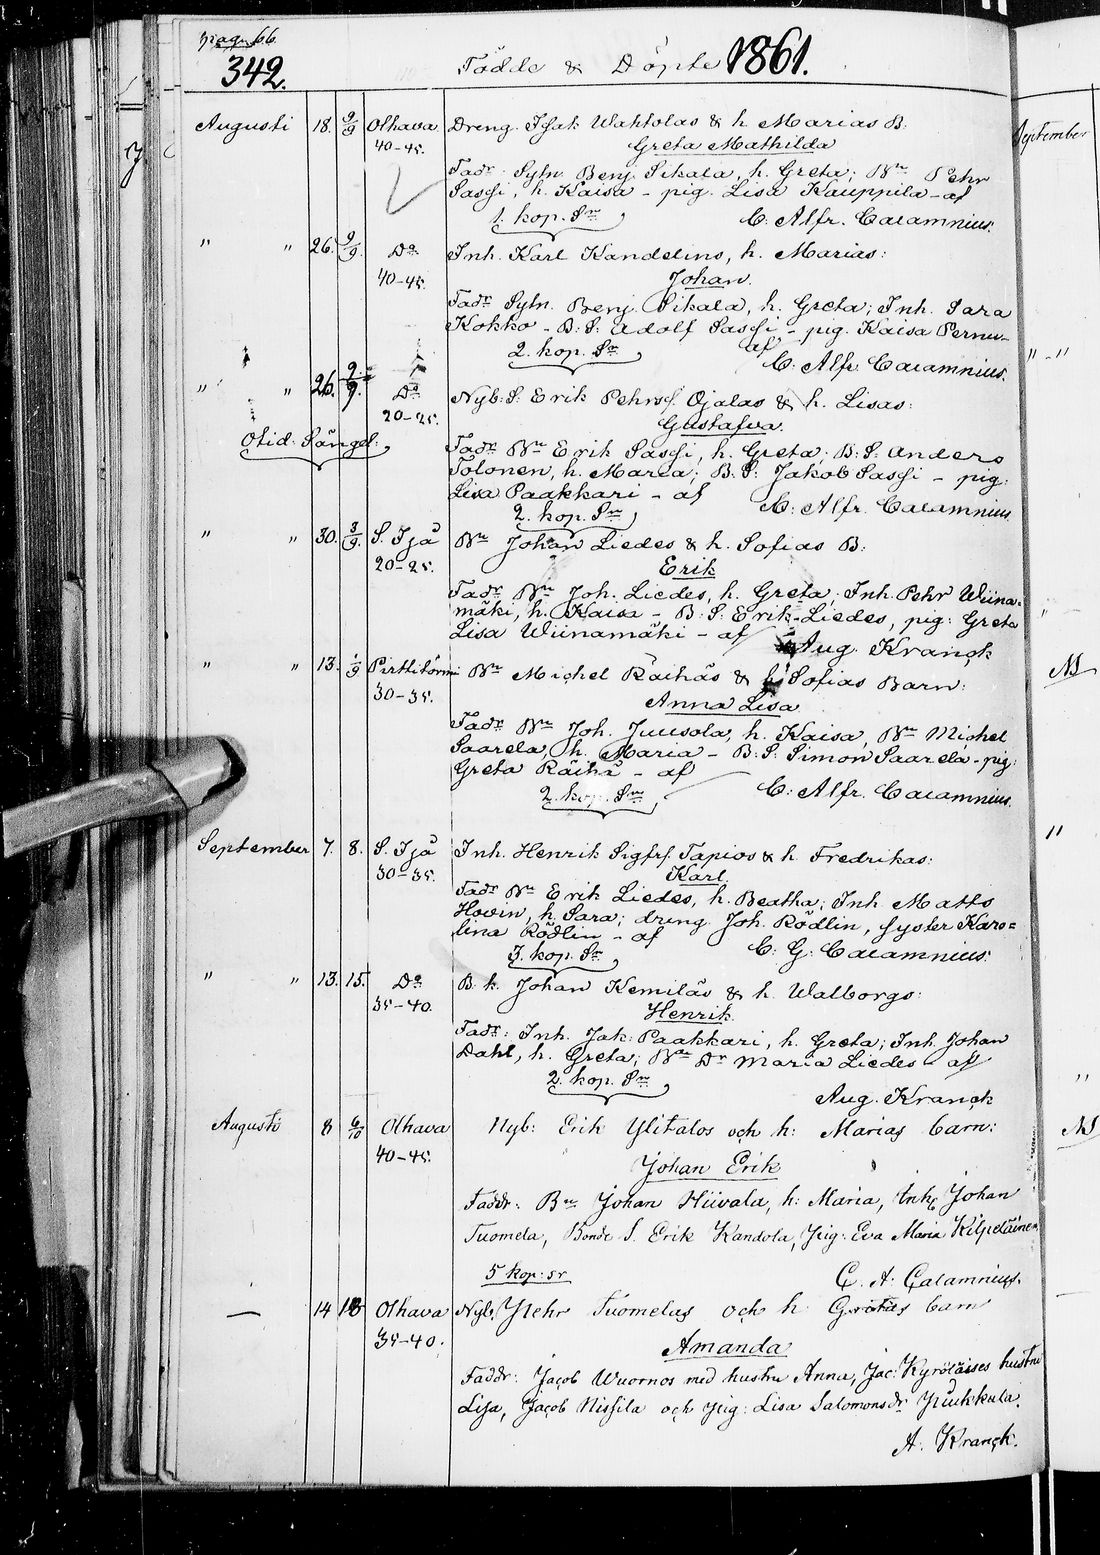 pag. 66.
342. Födde & Döpte 1861.
Augusti 18. 9/9 Olhava Dreng. Isak Wahtolas & h. Marias B:
40-45. Greta Mathilda
Fadr Sytn. Benj. Sikala, h. Greta; Bn Pehr
Sassi, h. Kaisa - pig. Lisa Kauppila - af
1. kop. Sr C: Alfr. Calamnius.
" " 26. 9/9. Do Inh. Karl Kandelins, h. Marias:
40-45. Johan.
Fadr Sytn. Benj. Sikala, h. Greta; Inh. Sara
Kokko - B: S: Adolf Sassi - pig. Kaisa Pernu -
2. kop. Sr af C: Alfr. Calamnius.
" " 26. 9/9. Do Nyb: S: Erik Pehrsf. Ojalas & h. Lisas:
20-25. Gustafva.
Otid: Sängel: Fadr Bn Erik Sassi, h. Greta; B: S: Anders
Tolonen, h. Maria; B: S: Jakob Sassi - pig:
Lisa Paakkari - af C: Alfr. Calamnius.
2. kop. Sr
" " 30. 3/9. S. Ijå Bn Johan Liedes & h. Sofias B:
20-25. Erik
Fadr Bn Joh. Liedes, h. Greta; Inh. Pehr Wiina=
mäki, h. Kaisa - B: S: Erik Liedes, pig: Greta
Lisa Wiinamäki - af Aug. Kranck
" " 13. 1/9 Pirttitörmi Bn Michel Räihäs & h. Sofias Barn:
30-35. Anna Lisa
Fadr Bn Joh. Juusola, h. Kaisa, Bn Michel
Saarela, h. Maria - B: S: Simon Saarela - pig:
Greta Räihä - af C: Alfr. Calamnius.
2. kop. Sr
September 7. 8. S. Ijå Inh. Henrik Sigfrs. Tapios & h. Fredrikas:
30-35. Karl.
Fadr Bn Erik Liedes, h. Beatha; Inh. Matts
Hovin, h. Sara; dreng Joh. Rödlin, syster Karo=
lina Rödlin - af C: G: Calamnius.
3. kop. Sr
" " 13. 15. Do B. k. Johan Kemiläs & h. Walborgs:
35-40. Henrik.
Fadr: Inh. Jak: Paakkari, h. Greta; Inh. Johan
Dahl, h. Greta; Bn Dr Maria Liedes - af
2. kop. Sr
Aug. Kranck
Augusti 8 6/10 Olhava Nyb: Erik Ylitalos och h: Marias barn:
40-45. Johan Erik
Faddr: Bn Johan Hiivala, h: Maria, Inh. Johan
Tuomela, Bonde S. Erik Kandola, Pig: Eva Maria Kilpeläinen.
5 kop: sr C. A: Calamnius.
— 14 18 Olhava Nyb. Pehr Tuomelas och h Gretas barn
35-40. Amanda
Faddr: Jacob Wuornos med hustru Anna, Jac: Kyröläises hustru
Lisa, Jacob Nissila och pig: Lisa Salomonsdr Puukkula.
A. Kranck.
September
" - "
"
NB
"
"
NB